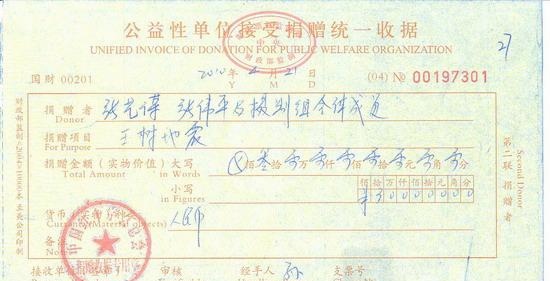 公益性单位接受捐赠统一收据
UNIFIED INVOICE OF DONATION FOR PUBLIC WELFARE ORGANIZATION
27
财政部监制
国财 00201
2010 4 21
Y M D
(04) № 00197301
捐赠者 张艺谋 张伟平与摄制组全体成员
Donor
捐赠项目 玉树地震
For Purpose
捐赠金额(实物价值)大写 佰叁拾零万零仟零佰零拾零元零角零分
Total Amount in Words
小写 佰拾万仟佰拾元角分
in Figures ¥30000000
货币(实物)种类 人民币
Currency (Material objects)
备注
接收单位 审核 经手人 孙 支票号
第二联 捐赠者
Second Donor